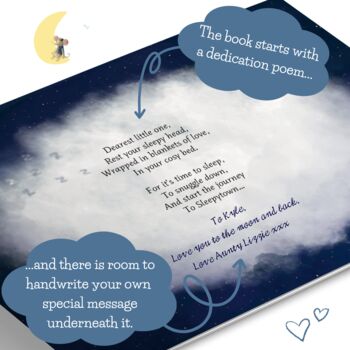 The book starts with
a dedication poem...
Dearest little one,
Rest your sleepy head,
Wrapped in blankets of love,
In your cosy bed.
For it's time to sleep,
To snuggle down,
And start the journey
To Sleepytown...
To Kyle,
Love you to the moon and back,
Love Aunty Lizzie xxx
...and there is room to
handwrite your own
special message
underneath it.